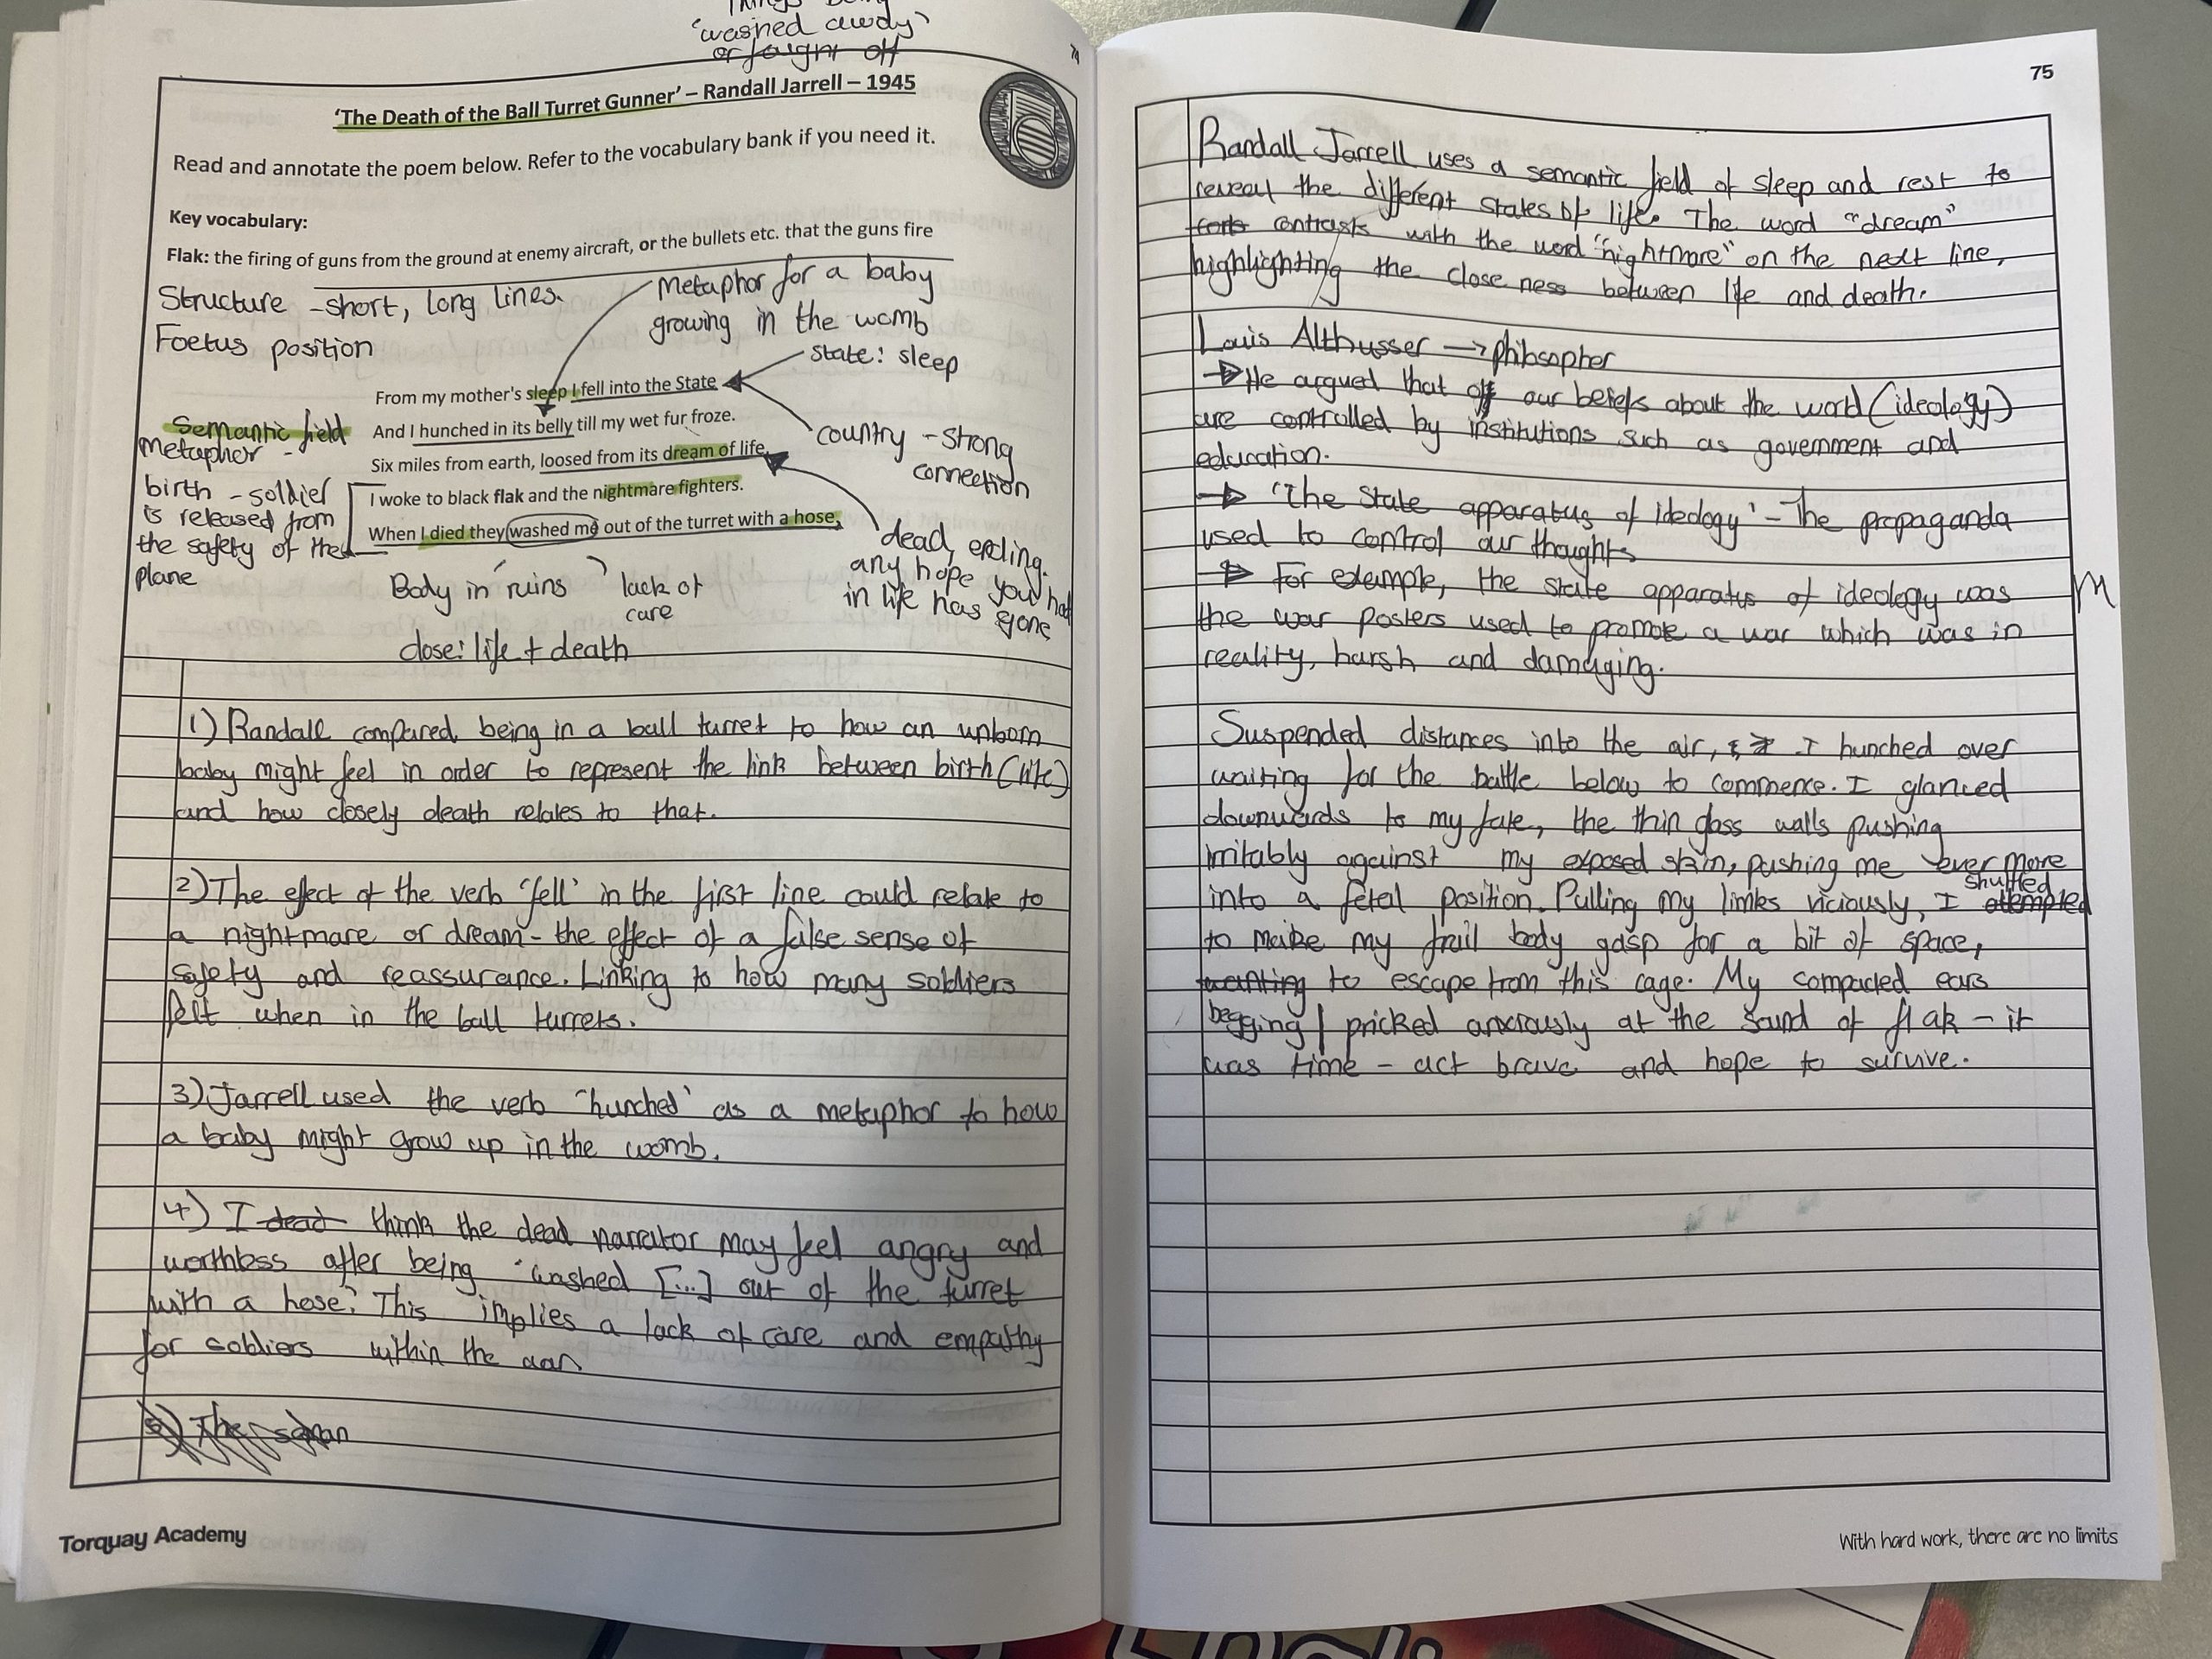 Things being
'washed away'
or fought off
74
'The Death of the Ball Turret Gunner' – Randall Jarrell – 1945
Read and annotate the poem below. Refer to the vocabulary bank if you need it.
Key vocabulary:
Flak: the firing of guns from the ground at enemy aircraft, or the bullets etc. that the guns fire
Structure - short, long lines.
Foetus position
Metaphor for a baby
growing in the womb
state: sleep
From my mother's sleep I fell into the State
And I hunched in its belly till my wet fur froze.
Six miles from earth, loosed from its dream of life,
I woke to black flak and the nightmare fighters.
When I died they washed me out of the turret with a hose.
Semantic field
Metaphor -
birth - soldier
is released from
the safety of the
plane
country - strong
connection
dead, ending.
any hope you had
in life has gone
Body in ruins
lack of
care
close: life + death
1) Randall compared being in a ball turret to how an unborn
baby might feel in order to represent the link between birth (life)
and how closely death relates to that.
2) The effect of the verb 'fell' in the first line could relate to
a nightmare or dream - the effect of a false sense of
safety and reassurance. Linking to how many soldiers
felt when in the ball turrets.
3) Jarrell used the verb 'hunched' as a metaphor to how
a baby might grow up in the womb.
4) I dead think the dead narrator may feel angry and
worthless after being 'washed [...] out of the turret
with a hose'. This implies a lack of care and empathy
for soldiers within the war.
5) The
Torquay Academy
75
Randall Jarrell uses a semantic field of sleep and rest to
reveal the different states of life. The word "dream"
contrasts with the word "nightmare" on the next line,
highlighting the close ness between life and death.
Louis Althusser → philsopher
→ He argued that our beliefs about the world (ideology)
are controlled by institutions such as government and
education.
→ 'The State apparatus of ideology' - The propaganda
used to control our thoughts
→ For example, the state apparatus of ideology was
the war posters used to promote a war which was in
reality, harsh and damaging.
M
Suspended distances into the air, I hunched over
waiting for the battle below to commence. I glanced
downwards to my fate, the thin glass walls pushing
irritably against my exposed skin, pushing me ever more
into a fetal position. Pulling my limbs viciously, I shuffled attempted
to make my frail body gasp for a bit of space,
wanting to escape from this cage. My compacted ears
begging / pricked anxiously at the sound of flak - it
was time - act brave and hope to survive.
With hard work, there are no limits